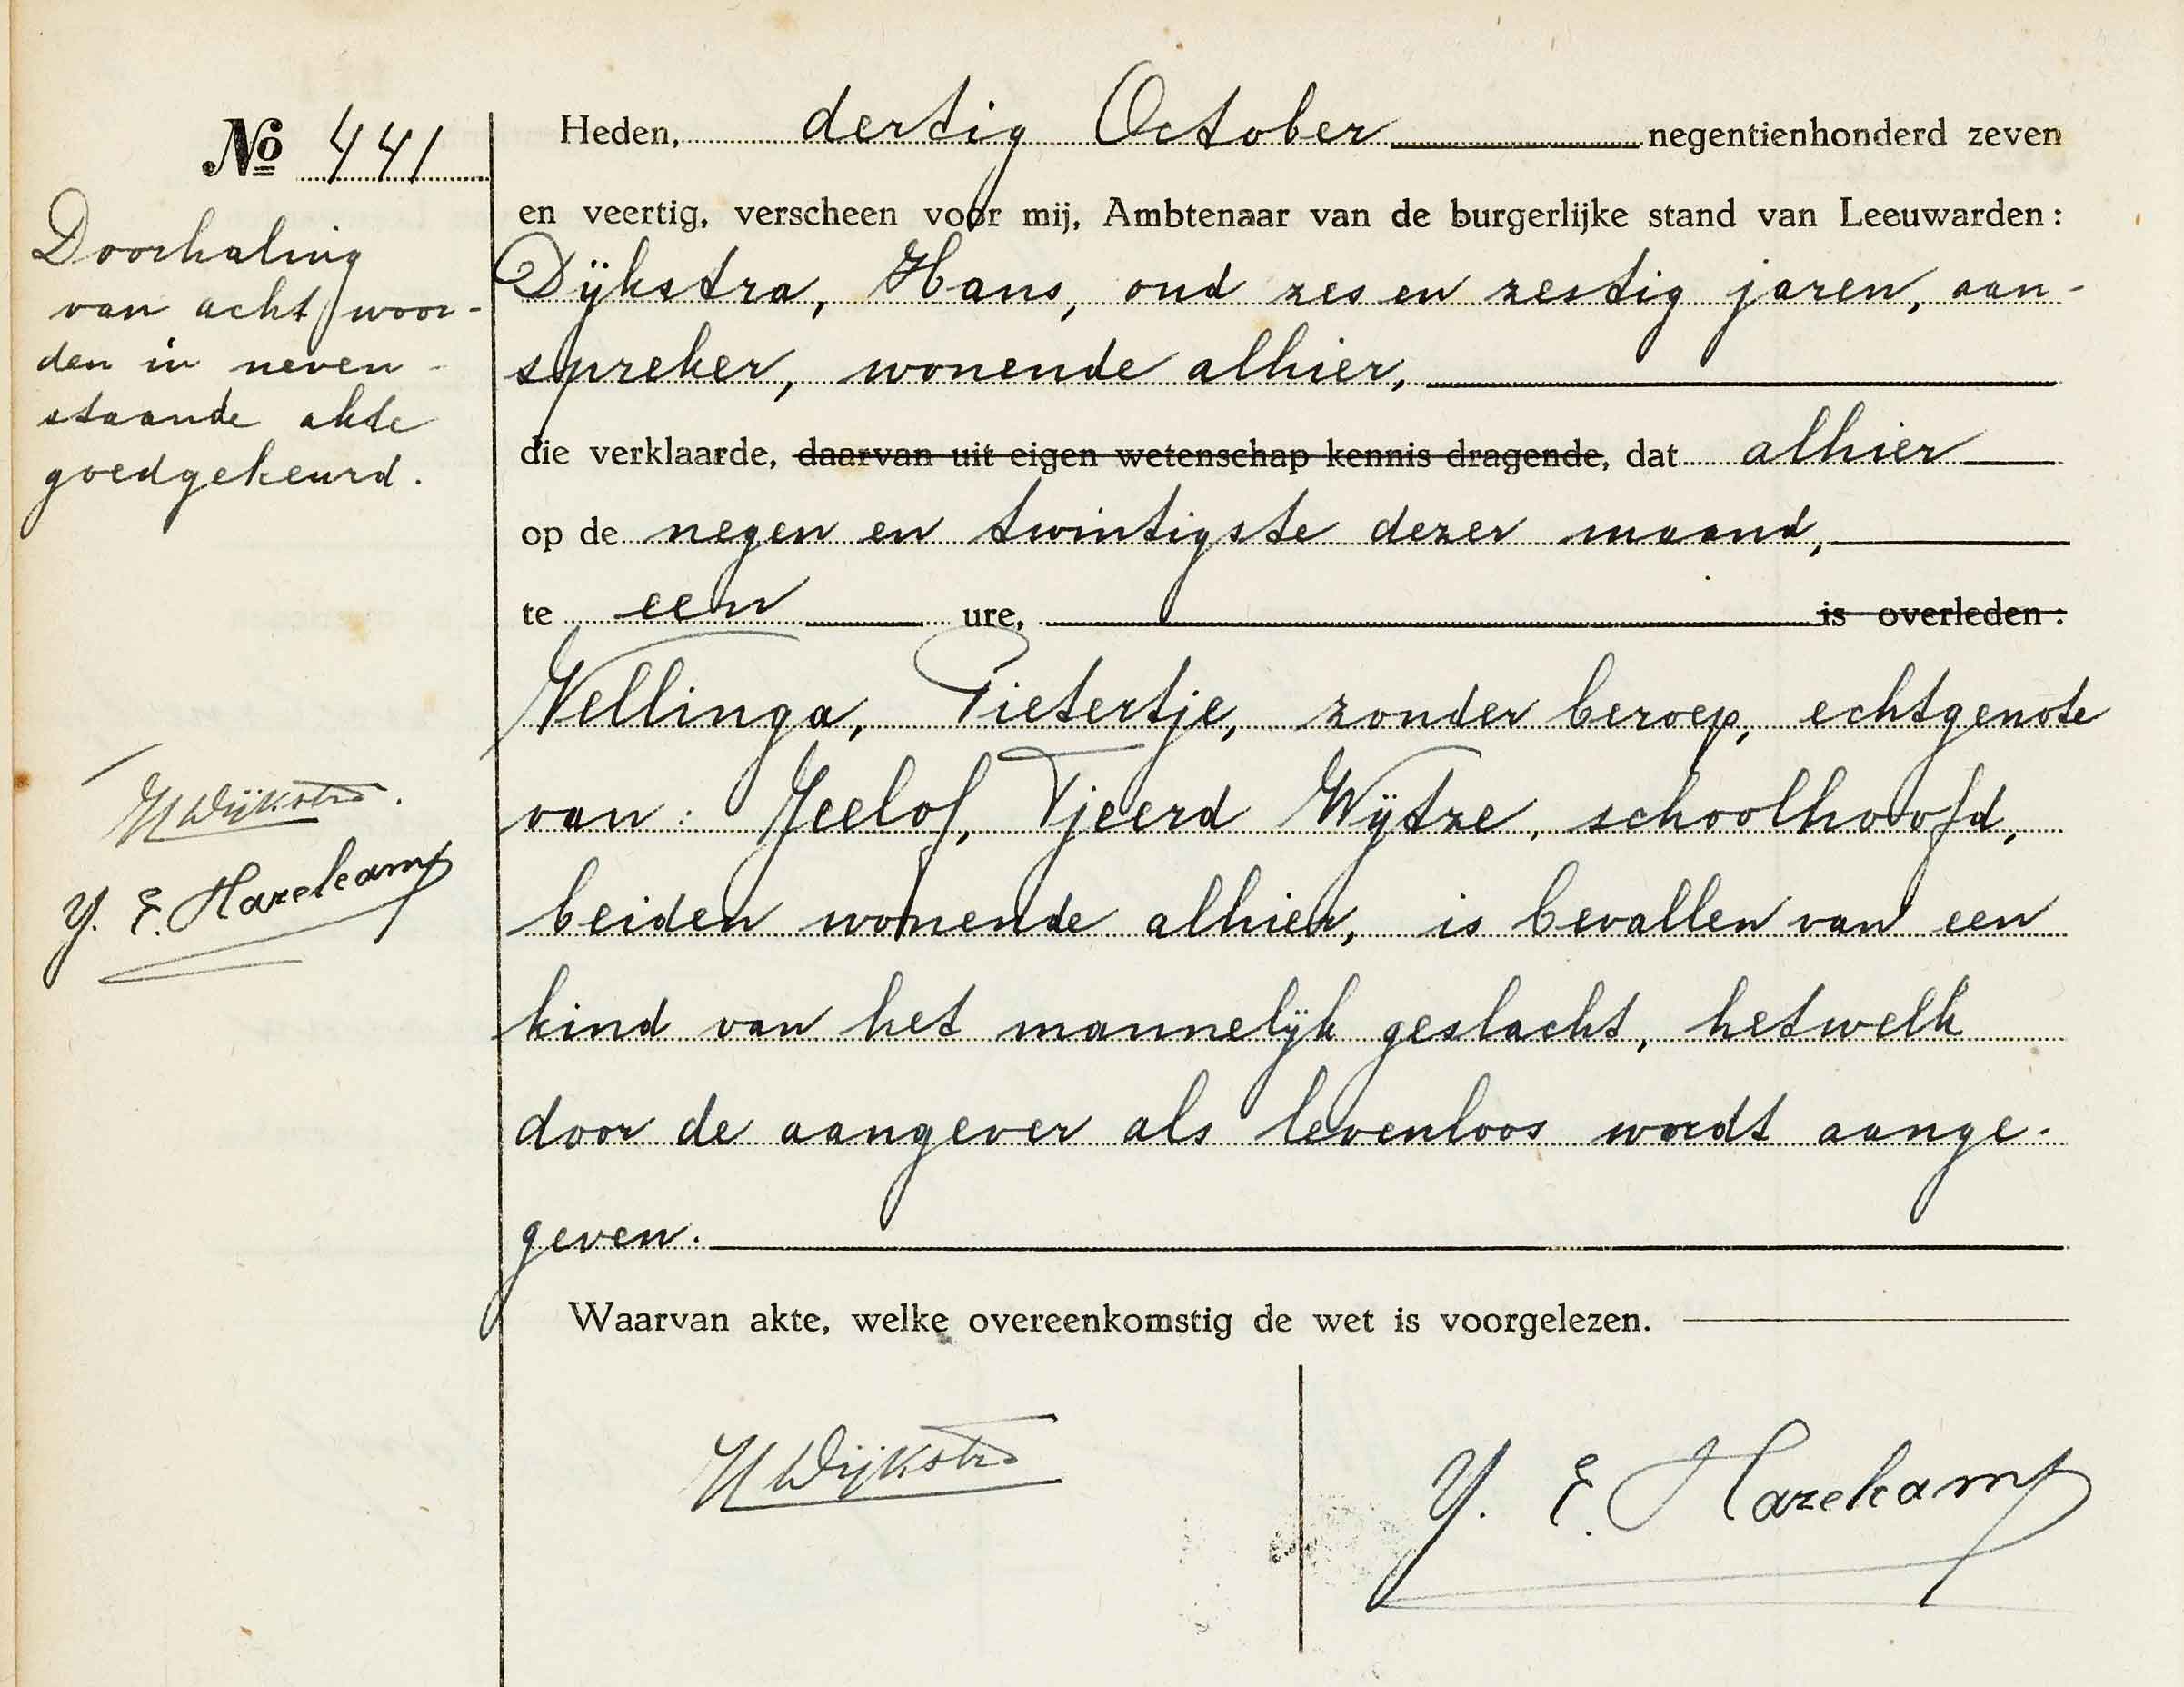 № 441
Doorhaling
van acht woor-
den in neven-
staande akte
goedgekeurd.
H Dijkstra.
Y. E. Hazekamp
Heden, dertig October negentienhonderd zeven
en veertig, verscheen voor mij, Ambtenaar van de burgerlijke stand van Leeuwarden:
Dijkstra, Hans, oud zes en zestig jaren, aan-
spreker, wonende alhier,
die verklaarde, daarvan uit eigen wetenschap kennis dragende, dat alhier
op de negen en twintigste dezer maand,
te een ure, is overleden:
Wellinga, Pietertje, zonder beroep, echtgenote
van: Jeelof, Tjeerd Wijtze, schoolhoofd,
beiden wonende alhier, is bevallen van een
kind van het mannelijk geslacht, hetwelk
door de aangever als levenloos wordt aange-
geven.
Waarvan akte, welke overeenkomstig de wet is voorgelezen.
H Dijkstra
Y. E. Hazekamp